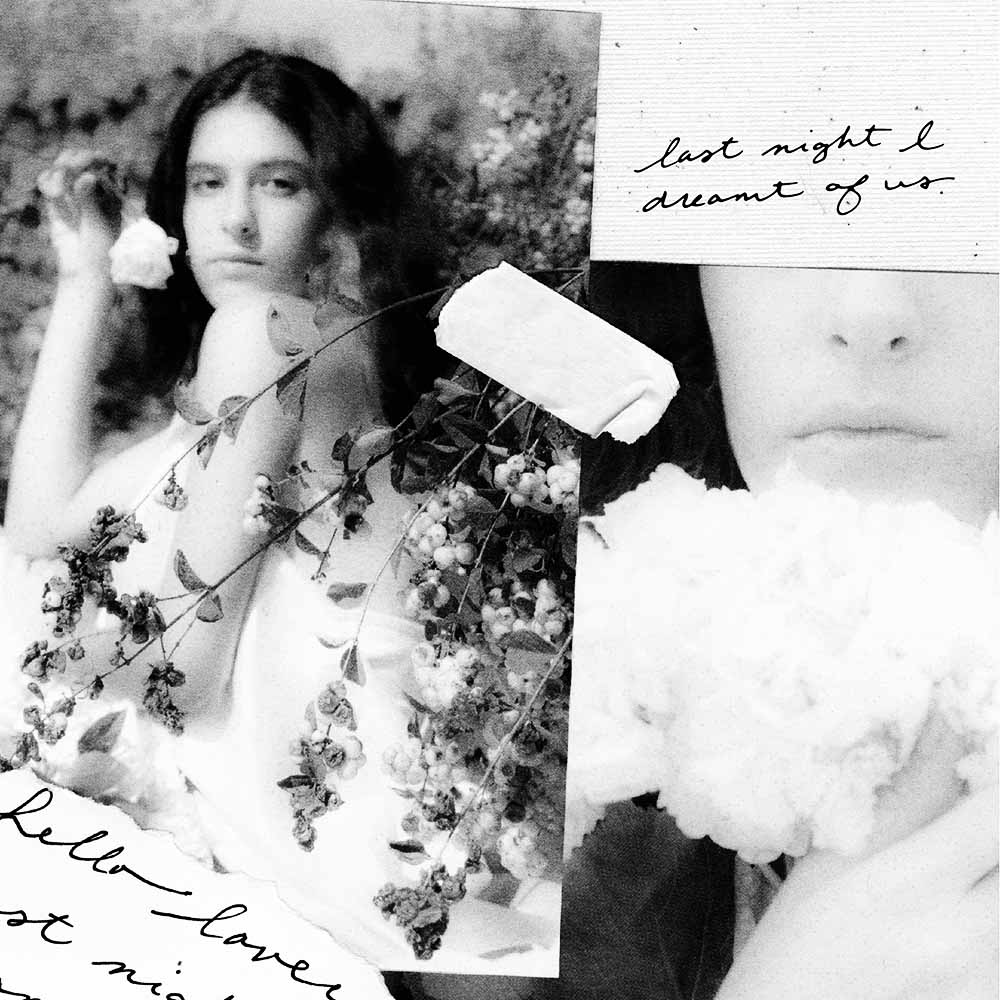 last night I
dreamt of us.
hello lover